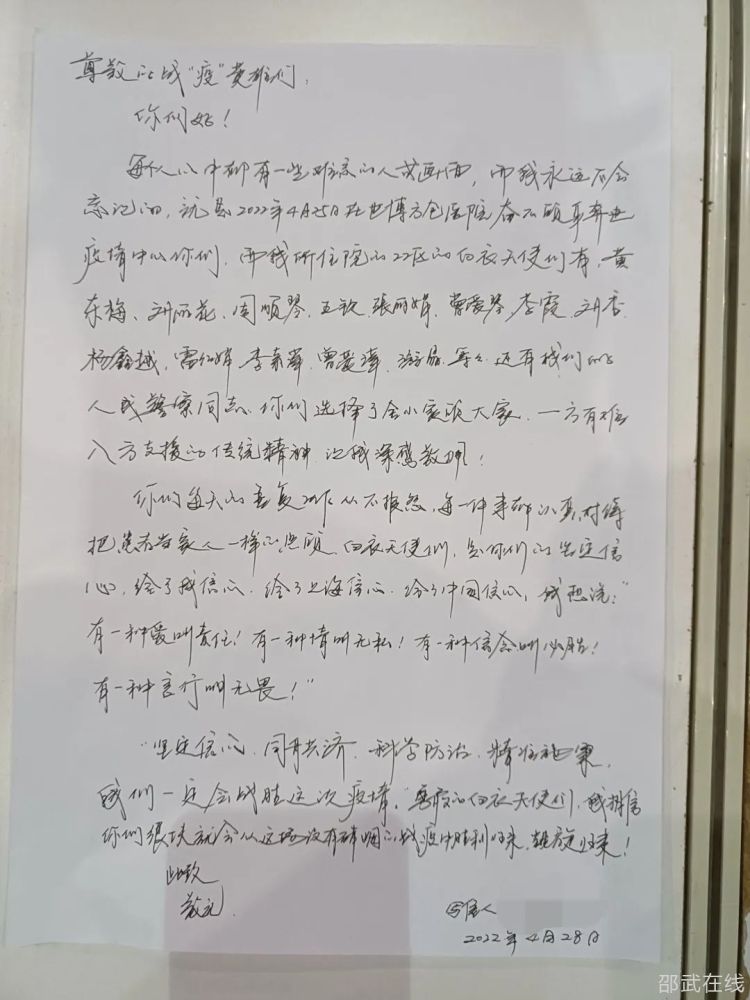 尊敬的战“疫”英雄们，
你们好！
每个人心中都有一些难忘的人或画面，而我永远不会
忘记的，就是2022年4月25日在世博方仓医院奋不顾身奔进
疫情中心你们，而我所住院的22区的白衣天使们有，黄
东梅、刘丽花、周顺琴、王钦、张丽娟、曾爱琴、李霞、刘香
杨鑫越、雷红娟、李素萍、曾爱萍、等等还有我们的
人民警察同志、你们选择了舍小家顾大家、一方有难
八方支援的传统精神、让我深感敬佩！
你们每天的重复工作从不抱怨，每一件事都认真对待
把患者当家人一样的照顾、白衣天使们，是你们的坚定信
心，给了我信心、给了上海信心、给了中国信心，我想说：“
有一种爱叫责任！有一种情叫无私！有一种信念叫必胜！
有一种言行叫无畏！”
“坚定信心、同舟共济、科学防治、精准施策，
我们一定会战胜这次疫情，”的白衣天使们，我相信
你们很快就会从这场没有硝烟的战疫中胜利归来，凯旋归来！
此致
敬礼
写信人
2022年4月28日
邵武在线